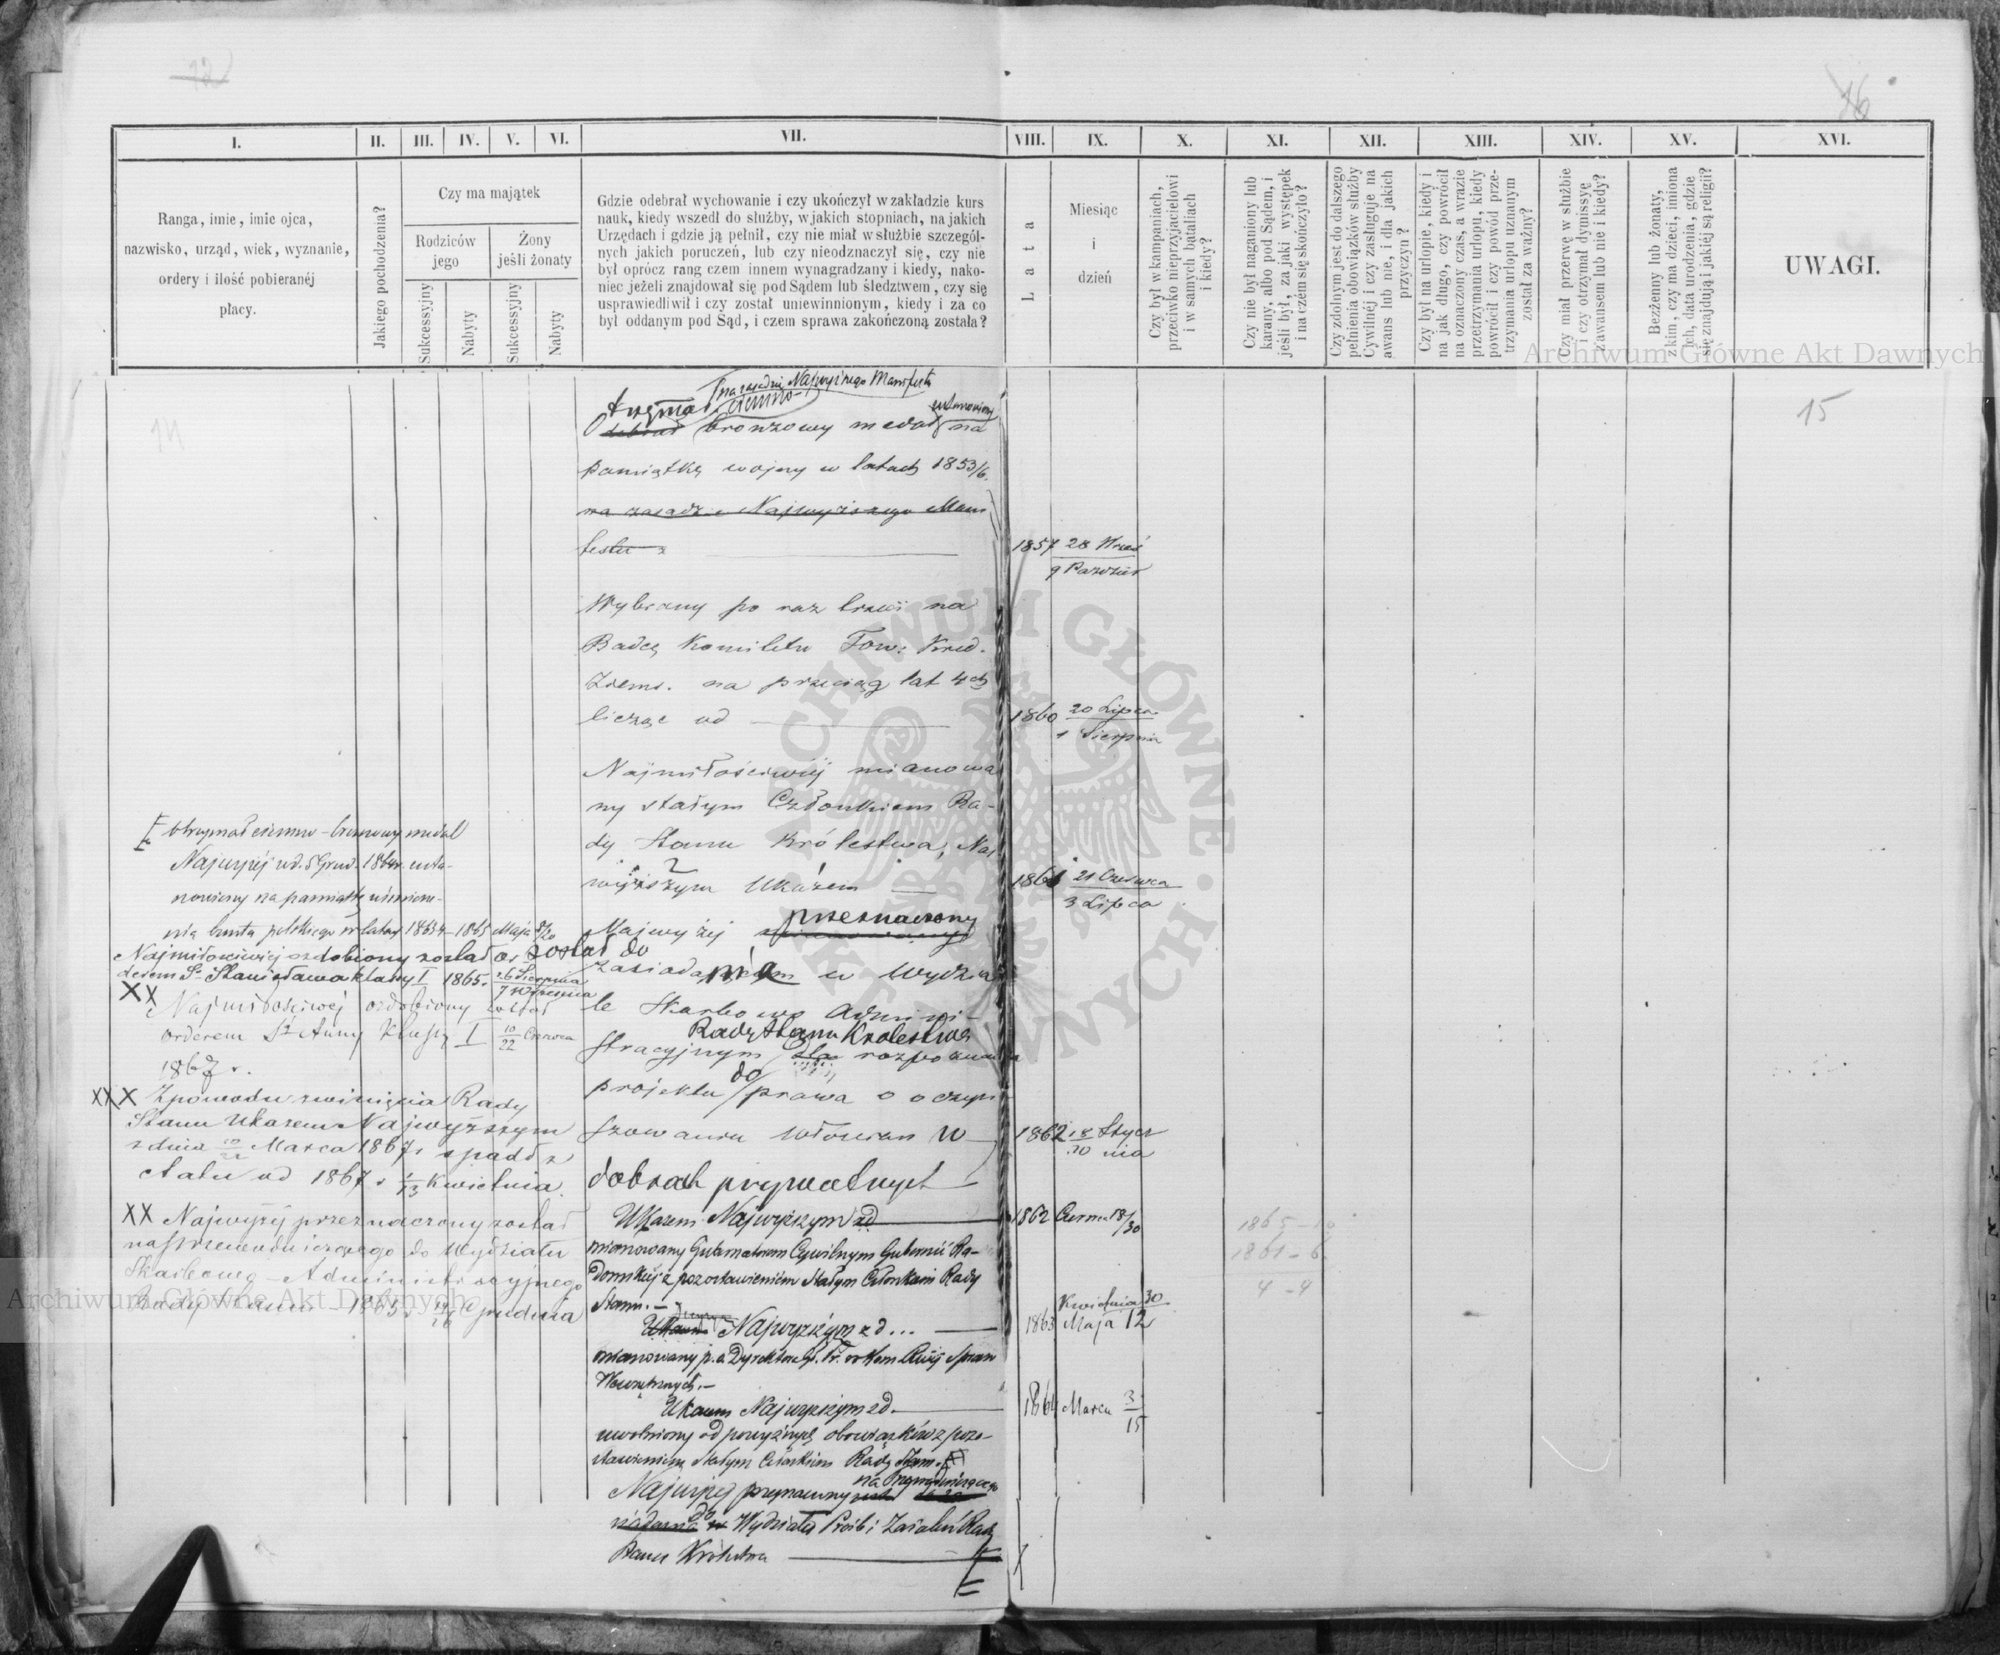 12
16
I.
II.
III.
IV.
V.
VI.
VII.
VIII.
IX.
X.
XI.
XII.
XIII.
XIV.
XV.
XVI.
Ranga, imie, imie ojca,
nazwisko, urząd, wiek, wyznanie,
ordery i ilość pobieranéj
płacy.
Jakiego pochodzenia?
Czy ma majątek
Rodziców
jego
Żony
jeśli żonaty
Sukcessyjny
Nabyty
Sukcessyjny
Nabyty
Gdzie odebrał wychowanie i czy ukończył w zakładzie kurs
nauk, kiedy wszedł do służby, w jakich stopniach, na jakich
Urzędach i gdzie ją pełnił, czy nie miał w służbie szczegól-
nych jakich poruczeń, lub czy nieodznaczył się, czy nie
był oprócz rang czem innem wynagradzany i kiedy, nako-
niec jeżeli znajdował się pod Sądem lub śledztwem, czy się
usprawiedliwił i czy został uniewinnionym, kiedy i za co
był oddanym pod Sąd, i czem sprawa zakończoną została?
Lata
Miesiąc
i
dzień
Czy był w kampaniach,
przeciwko nieprzyjacielowi
i w samych bataliach
i kiedy?
Czy nie był naganiony lub
karany, albo pod Sądem, i
jeśli był, za jaki występek
i na czém się skończyło?
Czy zdolnym jest do dalszego
pełnienia obowiązków służby
Cywilnéj i czy zasługuje na
awans lub nie, i dla jakich
przyczyn?
Czy był na urlopie, kiedy i
na jak długo, czy powrócił
na oznaczony czas, a w razie
przetrzymania urlopu, kiedy
powrócił i czy powód prze-
trzymania urlopu uznanym
został za ważny?
Czy miał przerwę w służbie
i czy otrzymał dymissyę
z awansem lub nie i kiedy?
Bezżenny lub żonaty,
z kim, czy ma dzieci, imiona
ich, data urodzenia, gdzie
się znajdują i jakiéj są religii?
UWAGI.
Archiwum Główne Akt Dawnych
14
15
na zasadzie Najwyższego Manifestu
otrzymał ciemno-
ustanowiony
Odebrał bronzowy medal na
pamiątkę wojny w latach 1853/6.
na zasadzie Najwyższego Mani
festu z
1857 28 Wrześ
9 Paździer
Wybrany po raz trzeci na
Radcę Komitetu Tow: Kred.
Ziems. na przeciąg lat 4ch
licząc od
1860 20 Lipca
1 Sierpnia
Najmiłościwiéj mianowa
ny stałym Członkiem Ra-
dy Stanu Królestwa, Naj
wyższym Ukazem
1861 21 Czerwca
3 Lipca
Najwyżej przeznaczony
został do
zasiadania w Wydzia
le Skarbowo Admini-
Rady Stanu Królestwa
stracyjnym dla rozpoznania
projektu do prawa o oczyn
szowaniu włościan w
1862 18/30 Stycz
nia
dobrach prywatnych
Ukazem Najwyższym zd
1862 Czerwca 18/30
mianowany Gubernatorem Cywilnym Gubernii Ra-
domskiéj z pozostawieniem Stałym Członkiem Rady
Stanu.-
Ukazem Najwyższym zd...
1863
Kwietnia 30
Maja 12
mianowany p.o. Dyrektora Gł. Pr. w Kom Rząd Spraw
Wewnętrznych.-
Ukazem Najwyższym zd.
1864 Marca 3/15
uwolniony od powyższych obowiązków z pozo-
stawieniem Stałym Członkiem Rady Stanu.
na Prezydującego
Najwyżej przeznaczony
do Wydziału Próśb i Zażaleń Rady
Stanu Królestwa
otrzymał ciemno-bronzowy medal
Najwyżéj ud. 5 Grud. 1864 r. usta-
nowiony na pamiątkę uśmierze-
nia buntu polskiego w latach 1863/4 - 1865 Maja 8/20
Najmiłościwiéj ozdobiony został or
derem Sgo Stanisława klassy I 1865. 26 Sierpnia
7 Września
XX Najmiłościwéj ozdobiony został
orderem Sti Anny Klassy I 10/22 Czerwca
1867 r.
XXX Z powodu zwinięcia Rady
Stanu Ukazem Najwyższym
z dnia Marca 1867 r spadł z
etatu od 1867 r 1/13 Kwietnia.
XX Najwyżéj przeznaczony został
na Przewodniczącego do Wydziału
Skarbowo-Administracyjnego
Rady Stanu - 1865 r. Grudnia
1865 - 10
1861 - 6
4 - 4
Archiwum Główne Akt Dawnych
ARCHIWUM GŁÓWNE AKT DAWNYCH